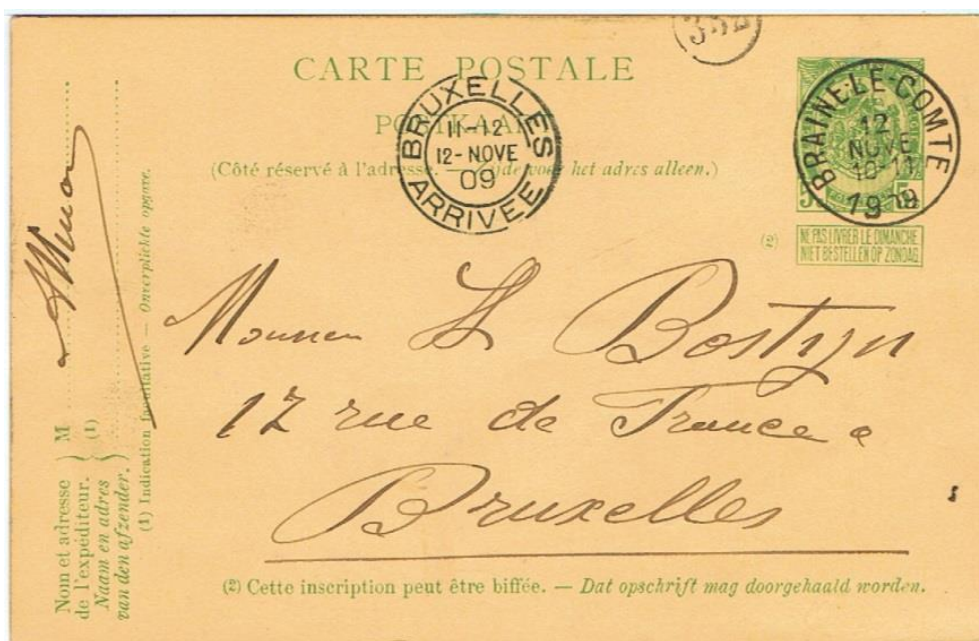 CARTE POSTALE
POSTKAART
(Côté réservé à l'adresse. — Zijde voor het adres alleen.)
BRUXELLES
11-12
12-NOVE
09
ARRIVÉE
BRAINE-LE-COMTE
12
NOVE
10-11
1909
5 5
(2)
NE PAS LIVRER LE DIMANCHE
NIET BESTELLEN OP ZONDAG
Bostijn
17 rue de France
Bruxelles
(2) Cette inscription peut être biffée. — Dat opschrift mag doorgehaald worden.
Nom et adresse
de l'expéditeur.
Naam en adres
van den afzender.
M
(1)
(1) Indication facultative — Onverplichte opgave.